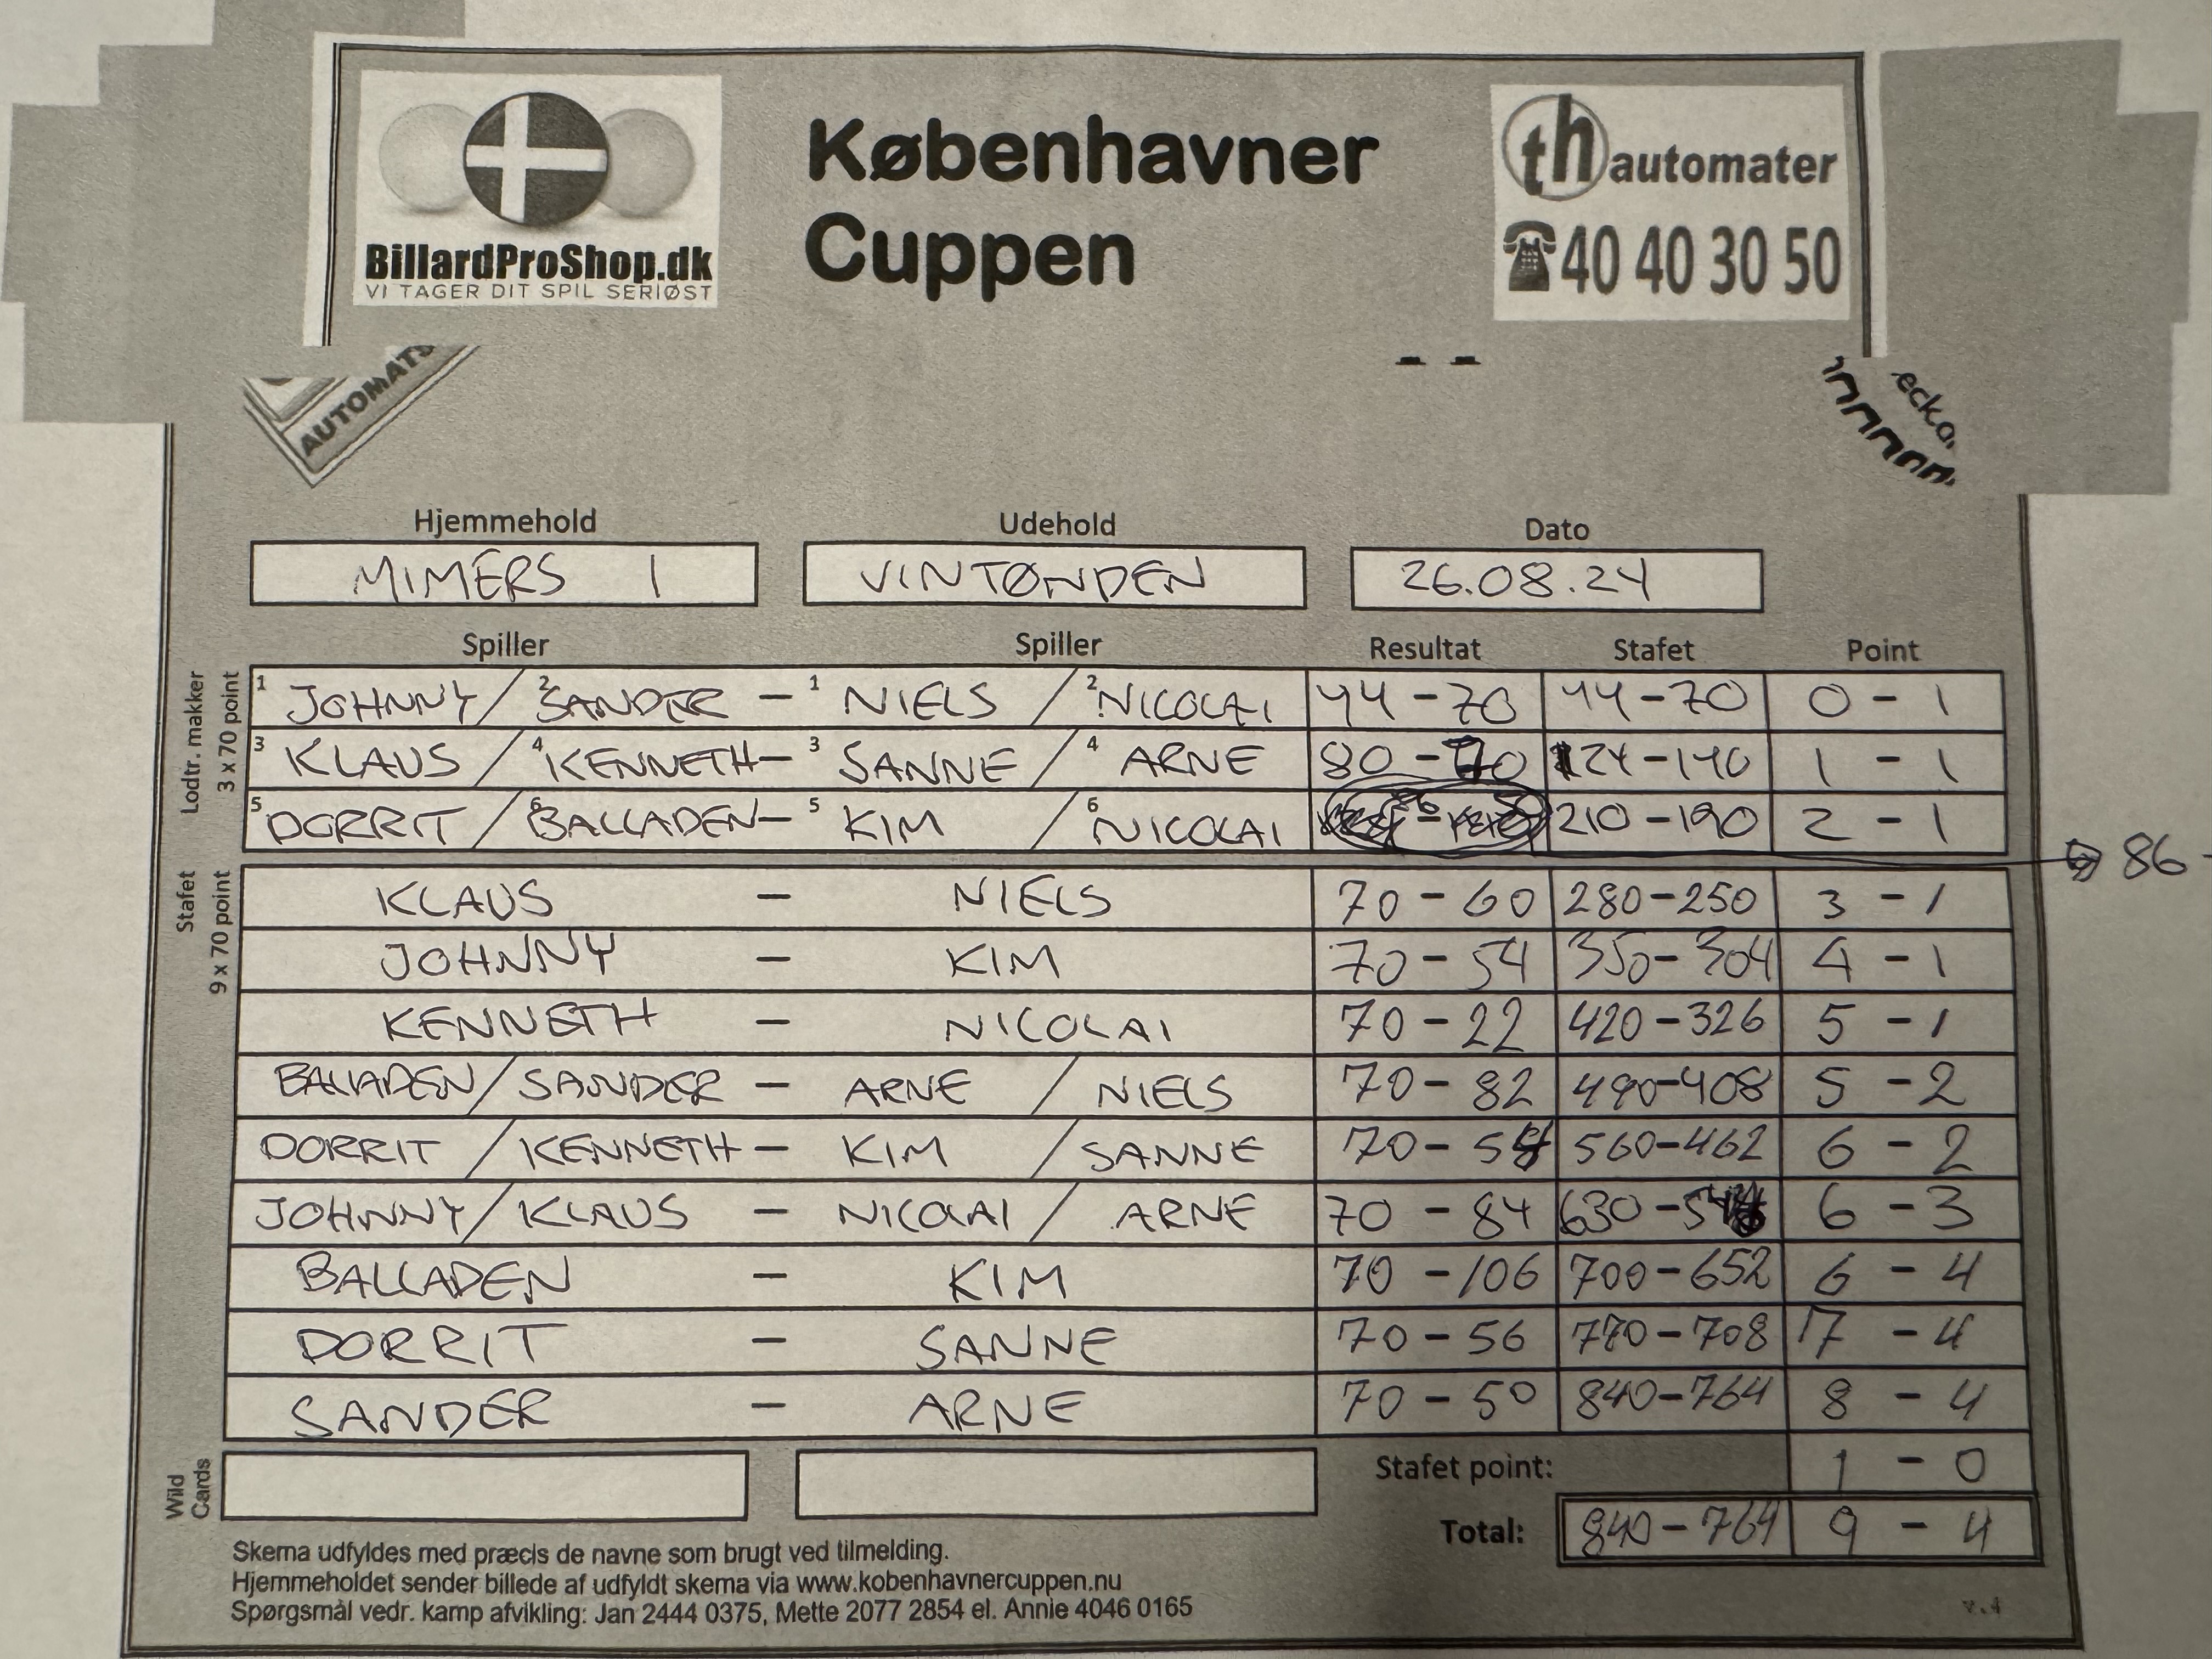 BillardProShop.dk
VI TAGER DIT SPIL SERIØST
Københavner
Cuppen
th automater
☎40 40 30 50
AUTOMATS
Hjemmehold Udehold Dato
MIMERS 1 VINTØNDEN 26.08.24
Spiller Spiller Resultat Stafet Point
Lodtr. makker
3 x 70 point
1 JOHNNY / 2 SANDER - 1 NIELS / 2 NICOLAI 44-70 44-70 0-1
3 KLAUS / 4 KENNETH - 3 SANNE / 4 ARNE 80-70 124-140 1-1
5 DORRIT / 6 BALLADEN - 5 KIM / 6 NICOLAI 210-190 2-1
86-
Stafet
9 x 70 point
KLAUS - NIELS 70-60 280-250 3-1
JOHNNY - KIM 70-54 350-304 4-1
KENNETH - NICOLAI 70-22 420-326 5-1
BALLADEN / SANDER - ARNE / NIELS 70-82 490-408 5-2
DORRIT / KENNETH - KIM / SANNE 70-54 560-462 6-2
JOHNNY / KLAUS - NICOLAI / ARNE 70-84 630- 6-3
BALLADEN - KIM 70-106 700-652 6-4
DORRIT - SANNE 70-56 770-708 7-4
SANDER - ARNE 70-50 840-764 8-4
Wild
Cards
Stafet point: 1-0
Total: 840-764 9-4
Skema udfyldes med præcis de navne som brugt ved tilmelding.
Hjemmeholdet sender billede af udfyldt skema via www.kobenhavnercuppen.nu
Spørgsmål vedr. kamp afvikling: Jan 2444 0375, Mette 2077 2854 el. Annie 4046 0165
v.4